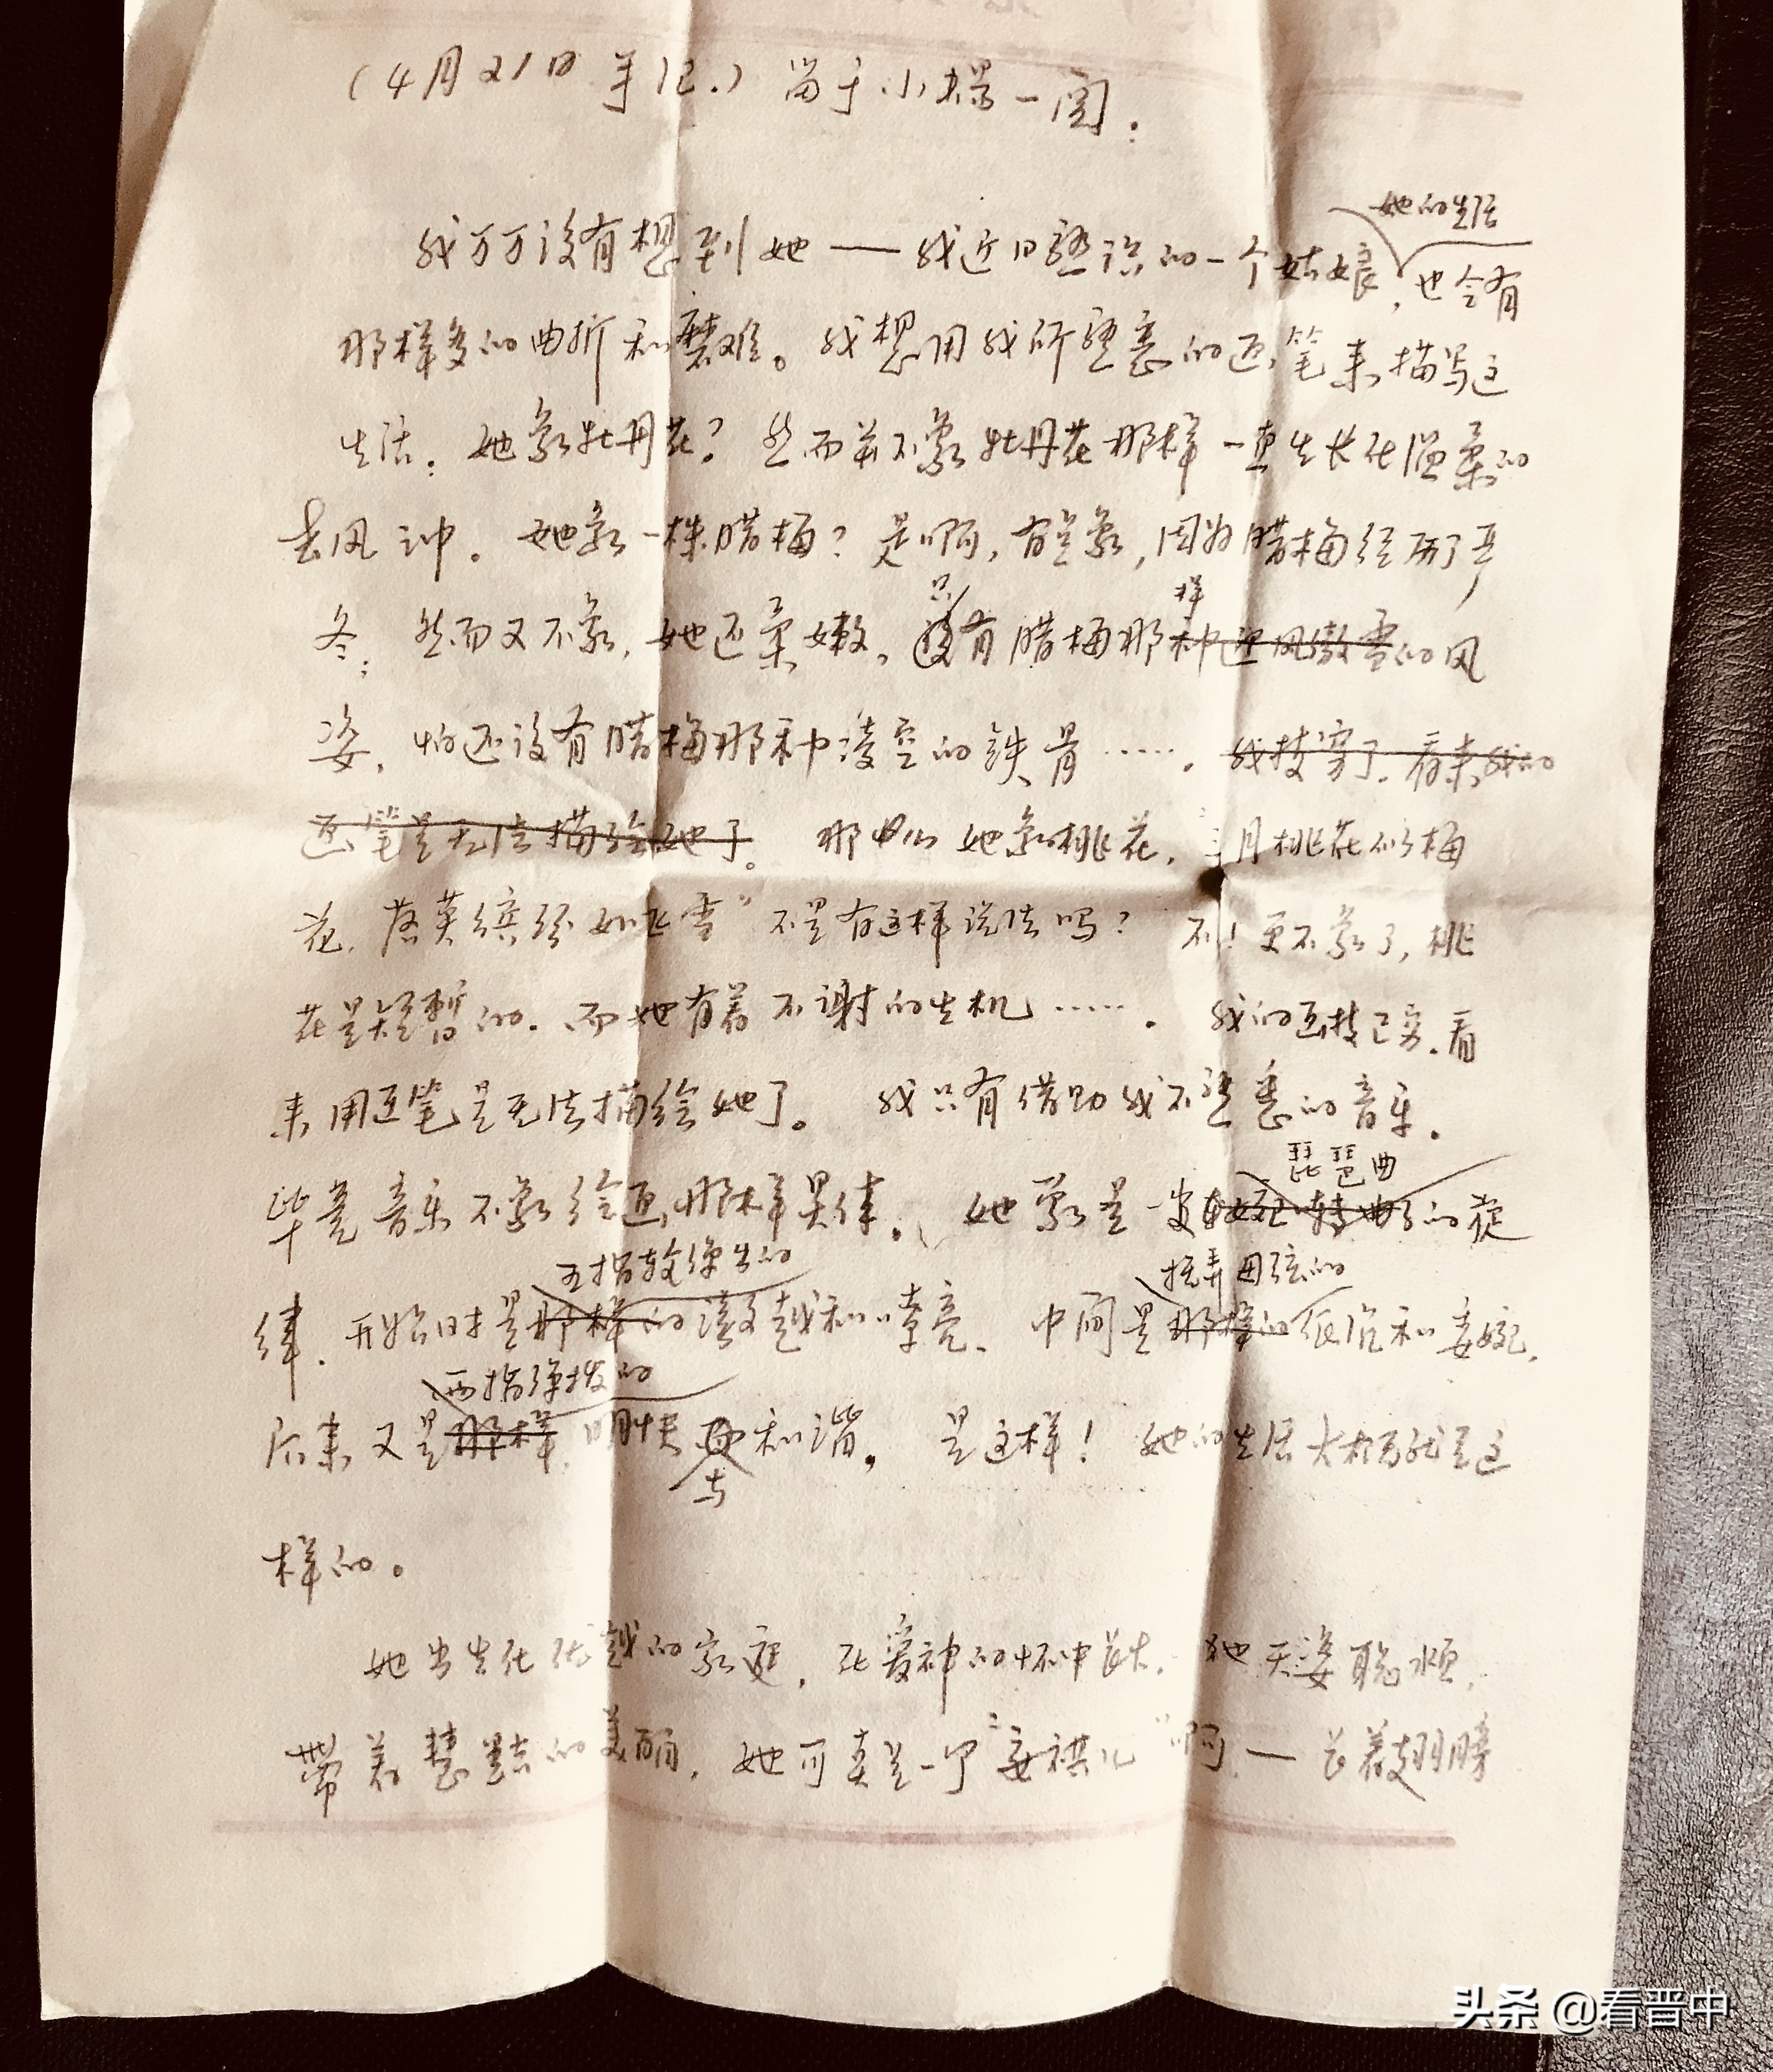 (4月21日 笔记.) 留于小楼一阅.
她的生活
我万万没有想到她——我近日熟识的一个姑娘,也会有
那样多的曲折和磨难。我想用我所熟悉的画笔来描写这
生活: 她象牡丹花? 然而并不象牡丹花那样一直生长在温柔的
春风之中. 她象一株腊梅? 是啊, 有些象, 因为腊梅经历了严
只 样
冬; 然而又不象, 她还柔嫩, 没有腊梅那种迎风傲雪的风
姿, 怕还没有腊梅那种凌空的铁骨……. 我技穷了. 看来我的
画笔是无法描绘她了。 那么她象桃花, “三月桃花似梅
花, 落英缤纷如飞雪”不是有这样说法吗? 不! 更不象了, 桃
花是短暂的. 而她有着不谢的生机……. 我的画技已穷. 看
来用画笔是无法描绘她了。 我只有借助我不熟悉的音乐.
琵琶曲
毕竟音乐不象绘画那样具体。 她象是一支婉转的旋
五指放弹出的
抚弄母弦的
律. 开始时是那样的激越和嘹亮. 中间是那样的低沉和委婉.
两指弹拨的
后来又是那样 明快 和谐。 是这样! 她的生活大概就是这
与
样的。
她出生在优越的家庭, 在爱神的怀中长大. 她天姿聪颖,
带着慧黠的美丽, 她可真是一个“安琪儿”啊——长着翅膀
头条 @看晋中